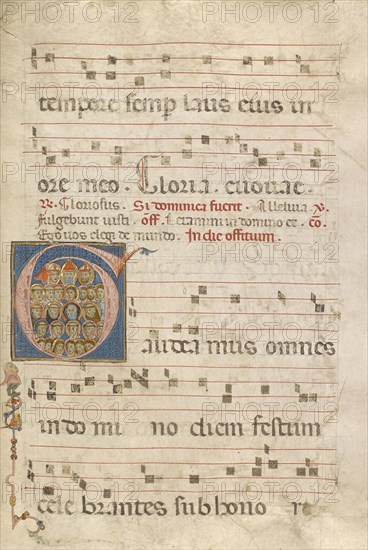 tempore semp laus eius in
ore meo. Gloria. euouae.
R. Gloriosus. Si dominica fuerit. Alleluia. V.
Fulgebunt iusti. off. Letamini in domino et. co.
Ego vos elegi de mundo. In die
Gaudea mus omnes
in do mi no diem festum
cele brantes sub hono re